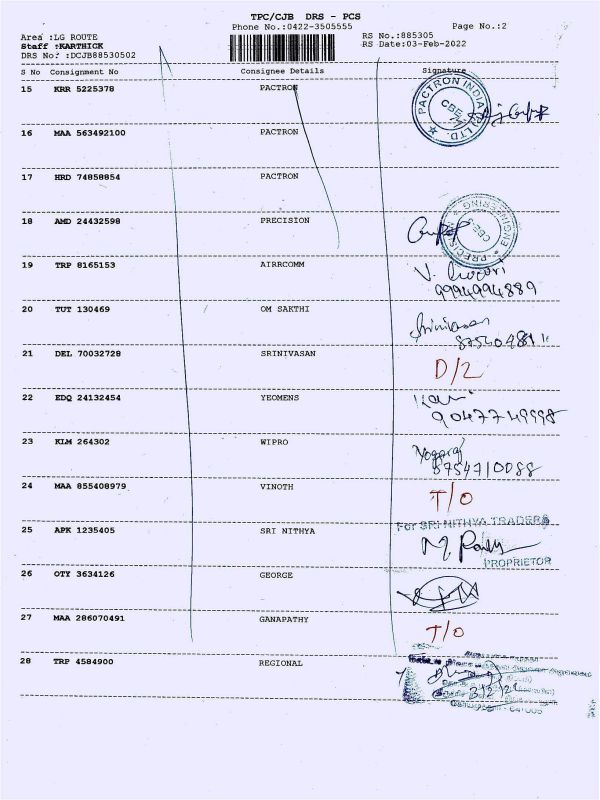 TPC/CJB DRS - PCS
Phone No.:0422-3505555 Page No.:2
Area :LG ROUTE RS No.:885305
Staff :KARTHICK RS Date:03-Feb-2022
DRS No? :DCJB88530502
S No Consignment No Consignee Details Signature
15 KRR 5225378 PACTRON
PACTRON INDIA LTD. CBE
16 MAA 563492100 PACTRON
17 HRD 74858854 PACTRON
18 AMD 24432598 PRECISION
PRECISION ENGINEERING CBE
19 TRP 8165153 AIRRCOMM
9994994889
20 TUT 130469 OM SAKTHI
Srinivasan
21 DEL 70032728 SRINIVASAN D/2
22 EDQ 24132454 YEOMENS
9047749998
23 KLM 264302 WIPRO
Yogaraj
8754710088
24 MAA 855408979 VINOTH T/O
25 APK 1235405 SRI NITHYA
For SRI NITHYA TRADERS
PROPRIETOR
26 OTY 3634126 GEORGE
27 MAA 286070491 GANAPATHY T/O
28 TRP 4584900 REGIONAL
3/2/22